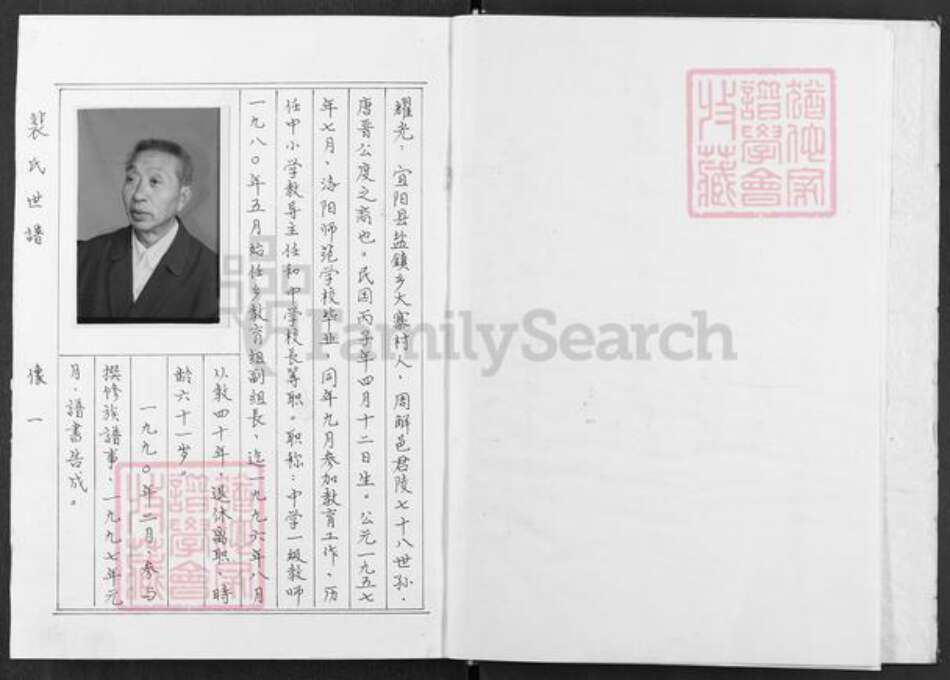 耀光：宜阳县盐鎮乡大寨村人，周解邑君陵七十八世孙，
唐晋公度之裔也。民国丙子年四月十二日生。公元一九五七
年七月，洛阳师范学校毕业，同年九月参加教育工作，历
任中小学教导主任和中学校長等职。职称：中学一级教师
一九八〇年五月始任乡教育组副组長，迄一九九六年八月
以教四十年，退休离职，時
龄六十一岁。
一九九〇年二月，参与
撰修族譜事，一九九七年元
月，譜書告成。
裴氏世譜
像一
FamilySearch
譜學會
收藏
譜學會
收藏